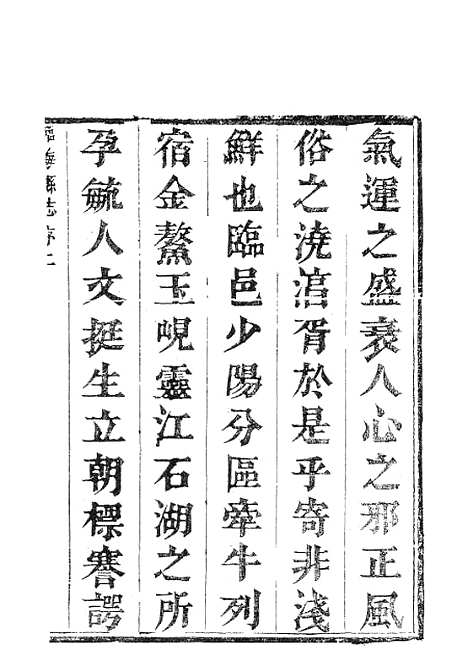 氣運之盛衰人心之邪正風
俗之澆漓胥於是乎寄非淺
鮮也臨邑少陽分區牽牛列
宿金鰲玉峴靈江石湖之所
孕毓人文挺生立朝標謇諤
臨海縣志序二